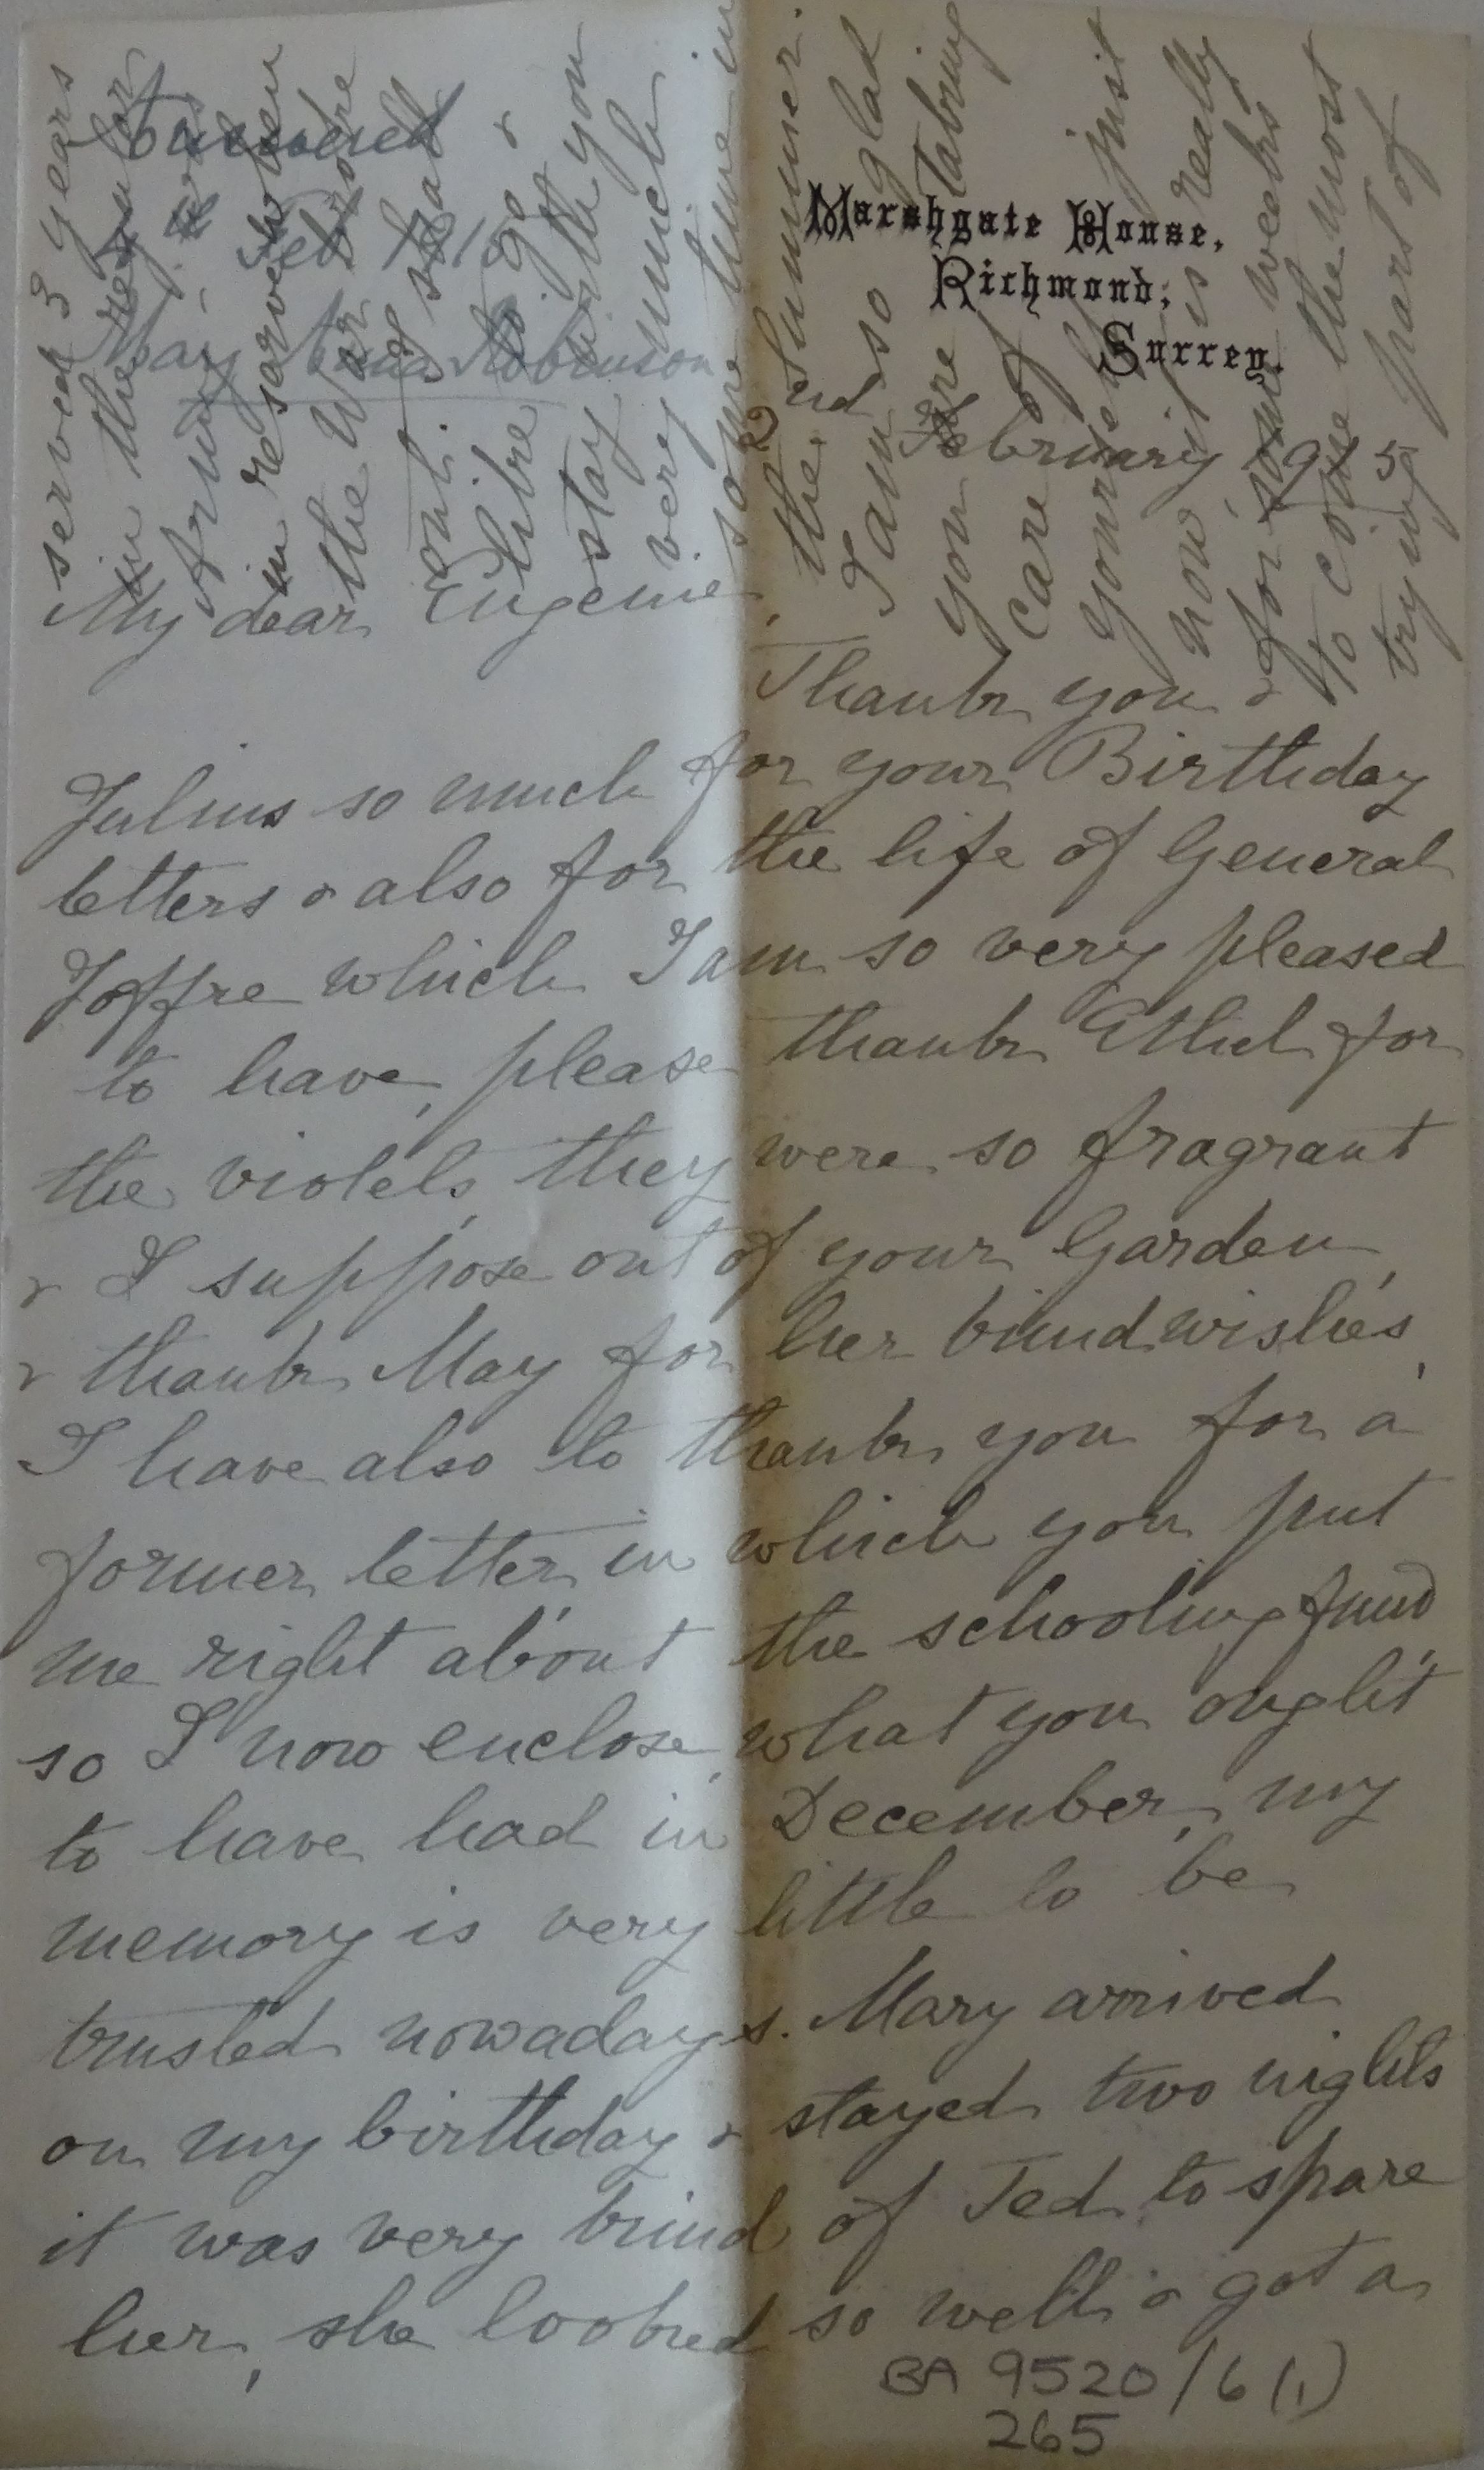 Marshgate House,
Richmond,
Surrey.
2nd February 1915
My dear Eugenie,
Thank you &
Julius so much for your Birthday
letters & also for the life of General
Joffre which I am so very pleased
to have, please thank Ethel for
the violets, they were so fragrant
& I suppose out of your Garden,
& thank May for her kind wishes,
I have also to thank you for a
former letter, in which you put
me right about the schooling fund,
so I now enclose, what you ought
to have had in December, my
memory is very little to be
trusted nowadays. Mary arrived
on my birthday & stayed two nights
it was very kind of Ted to spare
her, she looked so well & got a
served 3 years
in the regular
Army
in reserve when
the War broke
out. I shall
like to go &
stay with you
very much
some time in
the Summer.
I am so glad
you are taking
care of
yourself just
now, it is really
& for some weeks
to come the most
trying part of
Answered
Feb
Mary Anna Robinson
BA 9520/6(1)
265